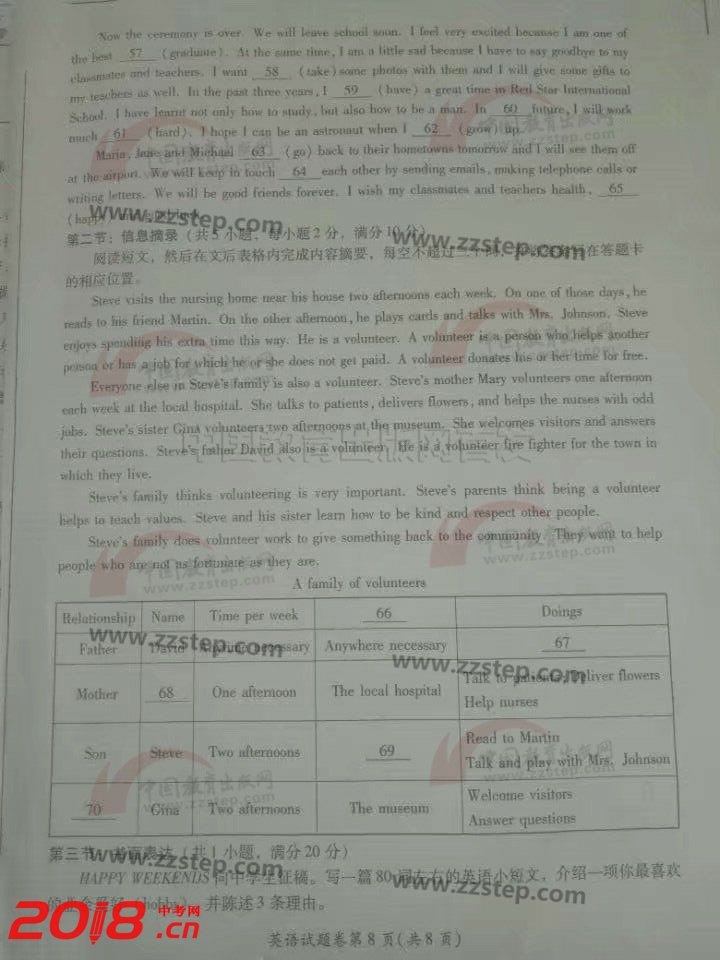 Now the ceremony is over. We will leave school soon. I feel very excited because I am one of
the best 57 (graduate). At the same time, I am a little sad because I have to say goodbye to my
classmates and teachers. I want 58 (take) some photos with them and I will give some gifts to
my teachers as well. In the past three years, I 59 (have) a great time in Red Star International
School. I have learnt not only how to study, but also how to be a man. In 60 future, I will work
much 61 (hard). I hope I can be an astronaut when I 62 (grow) up.
Maria, Jane and Michael 63 (go) back to their hometowns tomorrow and I will see them off
at the airport. We will keep in touch 64 each other by sending emails, making telephone calls or
writing letters. We will be good friends forever. I wish my classmates and teachers health, 65
第二节：信息摘录（共5小题，每小题2分，满分10分）
阅读短文，然后在文后表格内完成内容摘要，每空不超过三个词，在答题卡
的相应位置。
Steve visits the nursing home near his house two afternoons each week. On one of those days, he
reads to his friend Martin. On the other afternoon, he plays cards and talks with Mrs. Johnson. Steve
enjoys spending his extra time this way. He is a volunteer. A volunteer is a person who helps another
person or has a job for which he or she does not get paid. A volunteer donates his or her time for free.
Everyone else in Steve's family is also a volunteer. Steve's mother Mary volunteers one afternoon
each week at the local hospital. She talks to patients, delivers flowers, and helps the nurses with odd
jobs. Steve's sister Gina volunteers two afternoons at the museum. She welcomes visitors and answers
their questions. Steve's father David also is a volunteer. He is a volunteer fire fighter for the town in
which they live.
Steve's family thinks volunteering is very important. Steve's parents think being a volunteer
helps to teach values. Steve and his sister learn how to be kind and respect other people.
Steve's family does volunteer work to give something back to the community. They want to help
people who are not as fortunate as they are.
A family of volunteers
Relationship Name Time per week 66 Doings
Father David necessary Anywhere necessary 67
Mother 68 One afternoon The local hospital Talk to patients, Deliver flowers
Help nurses
Son Steve Two afternoons 69 Read to Martin
Talk and play with Mrs. Johnson
70 Gina Two afternoons The museum Welcome visitors
Answer questions
第三节：书面表达（共1小题，满分20分）
HAPPY WEEKENDS 向中学生征稿。写一篇80词左右的英语小短文，介绍一项你最喜欢
的业余爱好 (hobby)，并陈述3条理由。
英语试题卷第8页(共8页)
中国教育出版网
www.zzstep.com
2018.cn
中考网